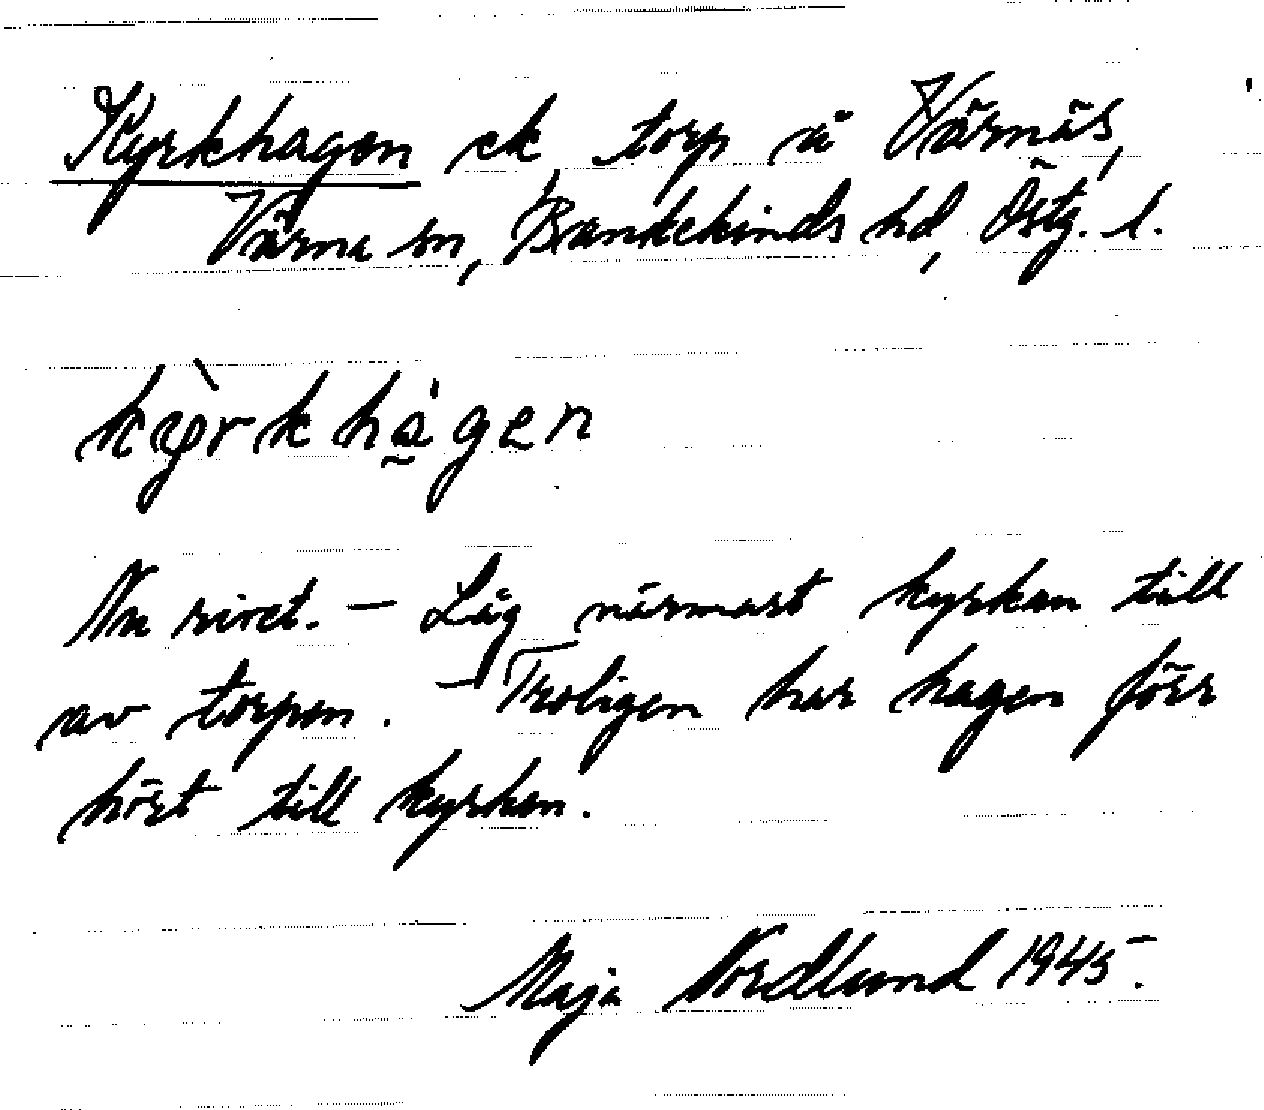 Kyrkhagen ek torp å Värnäs,
Värna sn, Bankekinds hd, Östg. l.
kỳrkha̰̍gen
Nu rivet. — Låg närmast kyrkan till
av torpen. — Troligen har hagen förr
hört till kyrkan.
Maja Nordlund 1945.